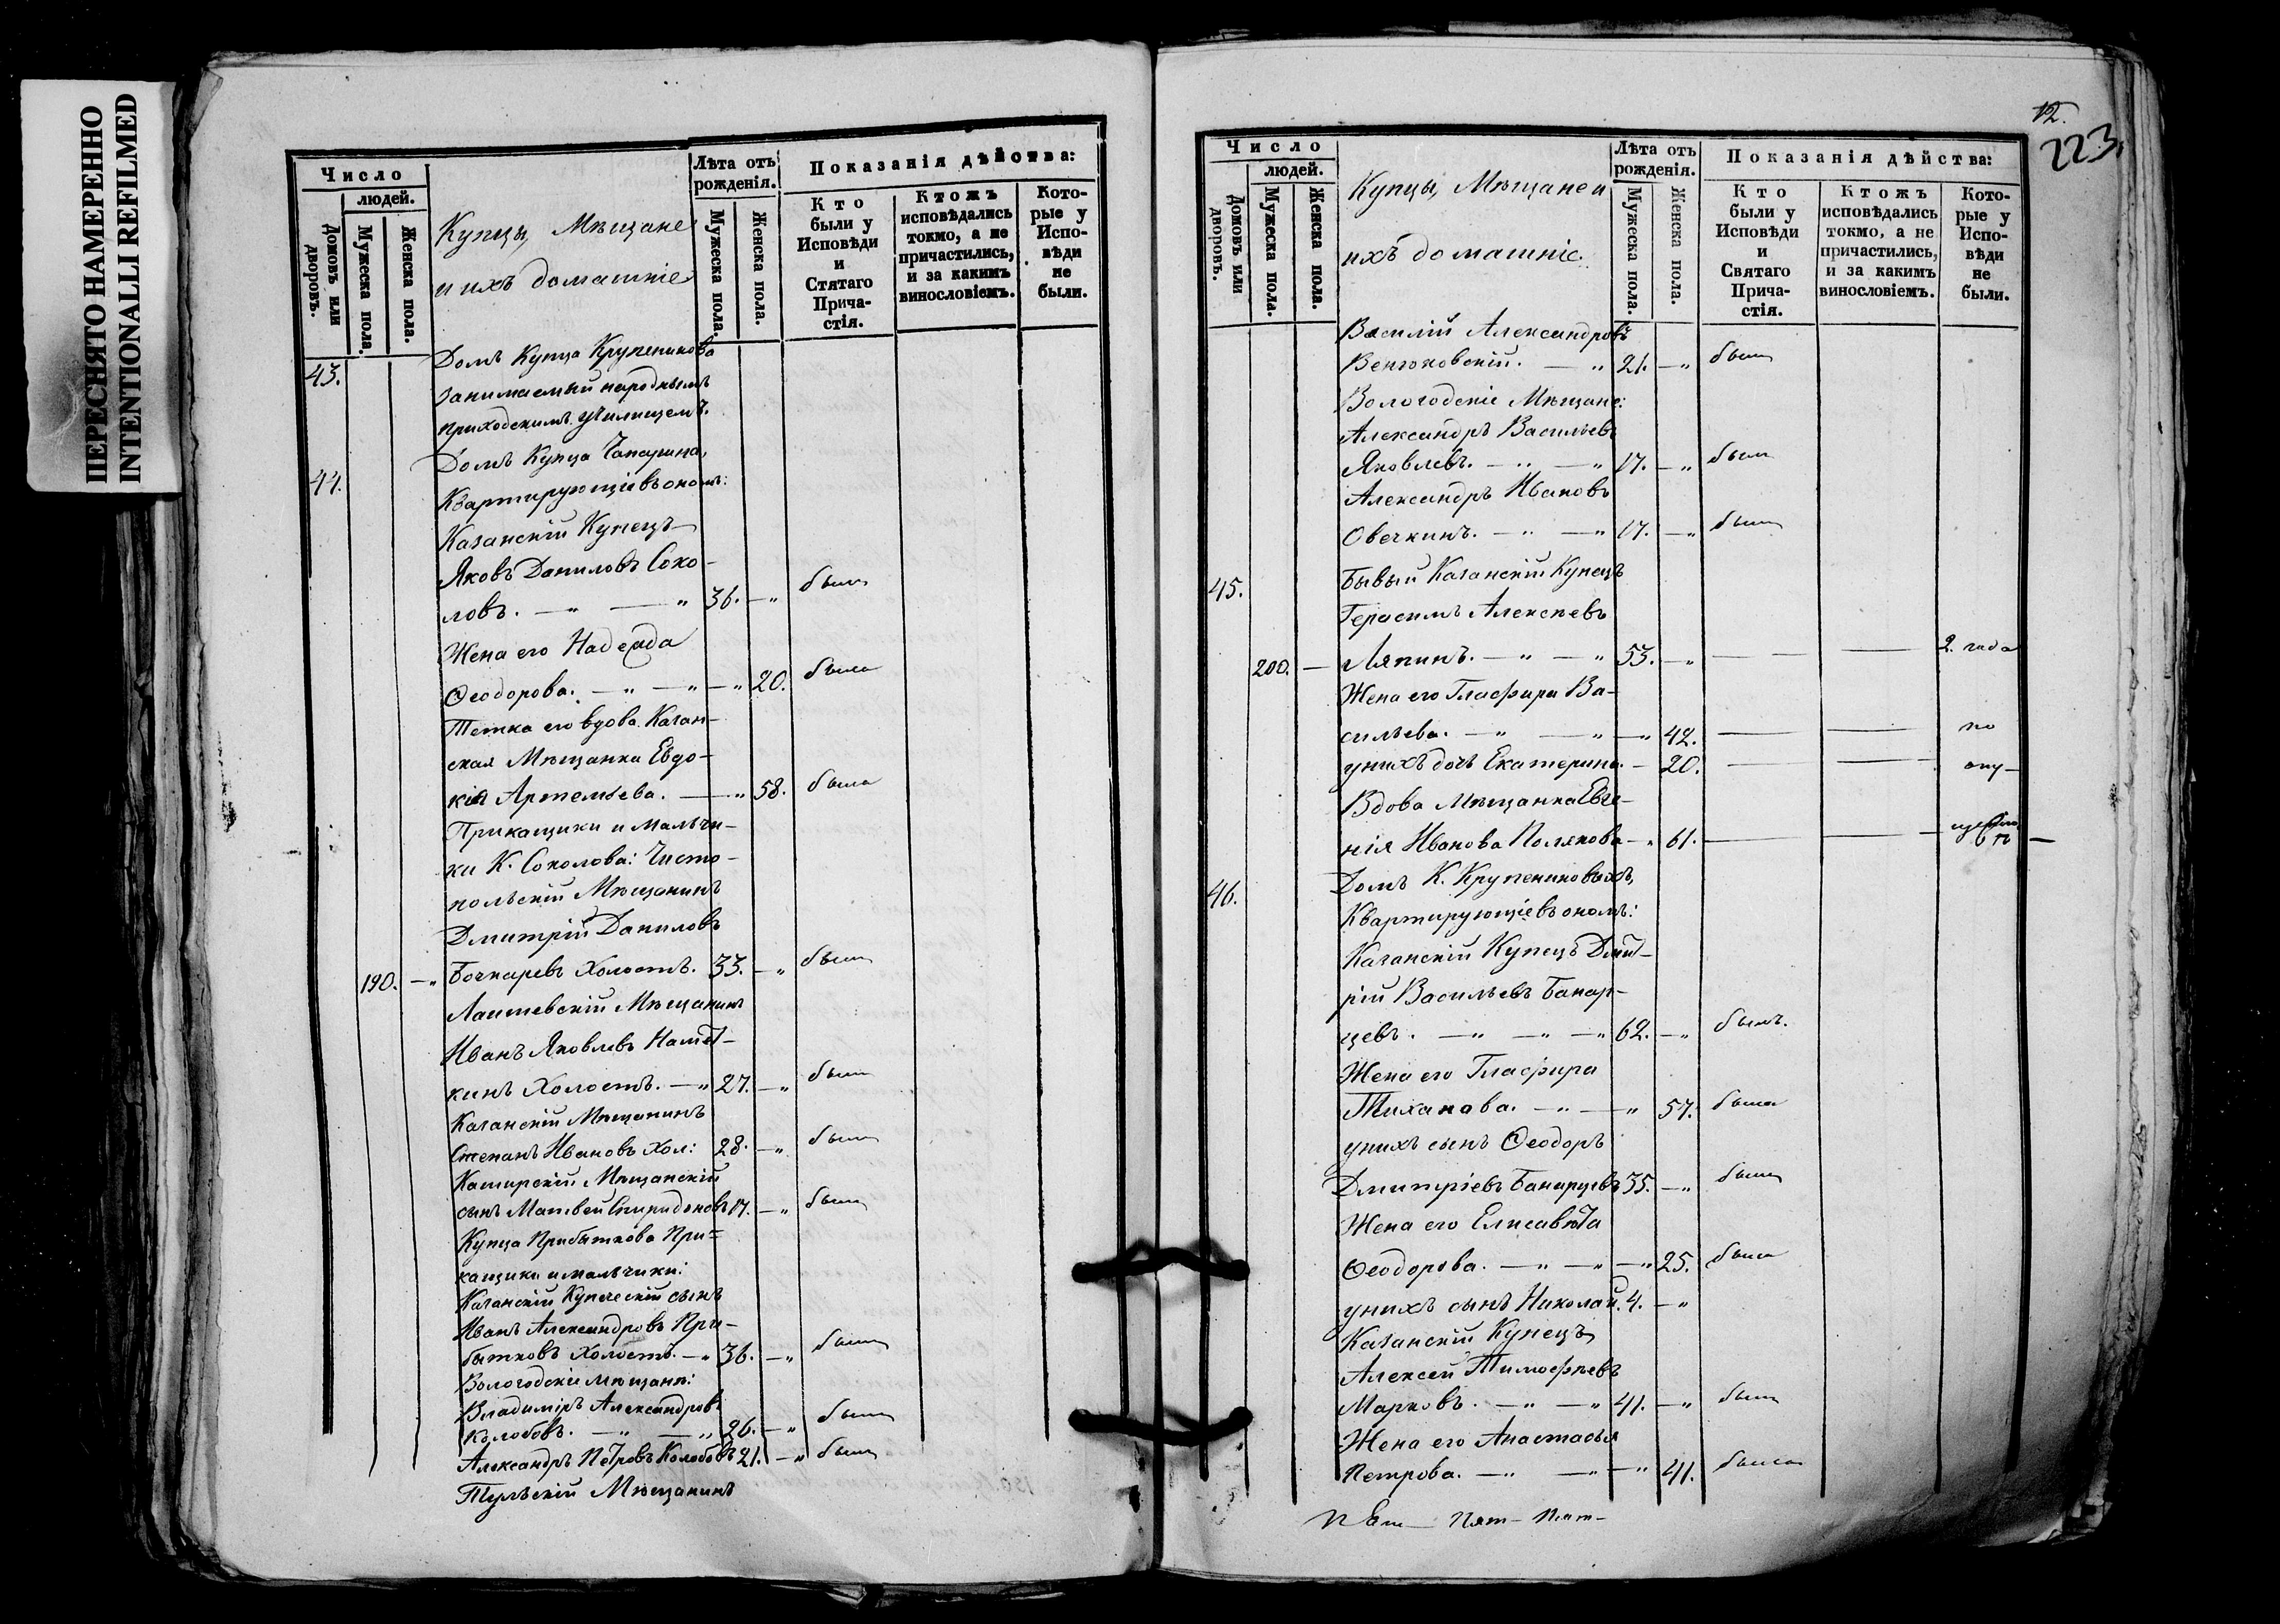 ПЕРЕСНЯТО НАМЕРЕННО
INTENTIONALLI REFILMED
Число
людей.
Домовъ или дворовъ.
Мужеска пола.
Женска пола.
Купцы, Мѣщане
и ихъ домашніе
Лѣта отъ рожденія.
Мужеска пола.
Женска пола.
Показанія дѣйства:
Кто были у Исповѣди и Стятаго Прича-стія.
Ктожъ исповѣдались токмо, а не причастились, и за какимъ винословіемъ.
Кото-рые у Испо-вѣди не были.
43. Домъ Купца Крупеникова
занимаемый народнымъ
приходскимъ училищемъ.
44. Домъ Купца Чапарина,
Квартирующіе въ ономъ:
Казанскій Купецъ
Яковъ Даниловъ Соко-
ловъ. — „ — „ 36. — „ былъ
Жена его Надежда
Ѳеодорова. — „ — „ — „ 20. была
Тетка его вдова Казан-
ская Мѣщанка Евдо-
кія Артемьева. — „ 58. была
Прикащики и мальчи-
ки К. Соколова: Чисто-
польскій Мѣщанинъ
Дмитрій Даниловъ
190. — „ Бочкаревъ Холостъ. 33. — „ былъ
Лаишевскій Мѣщанинъ
Иванъ Яковлевъ
кинъ Холостъ. — „ 27. — „ былъ
Казанскій Мѣщанинъ
Степанъ Ивановъ хол: 28. — „ былъ
Каширскій Мѣщанскій
сынъ Матвей Спиридоновъ 17. — „ былъ
Купца Прибыткова При-
кащики и мальчики:
Казанскій Купеческій сынъ
Иванъ Александровъ При-
бытковъ Холостъ. — „ 36. — „ былъ
Вологодскіе мѣщане:
Владиміръ Александровъ
Колобовъ. — „ — „ 26. — „ былъ
Александръ Петровъ Колобовъ 21. — „ былъ
Тульскій Мѣщанинъ
12.
223.
Число
людей.
Домовъ или дворовъ.
Мужеска пола.
Женска пола.
Купцы, Мѣщане и
ихъ домашніе.
Лѣта отъ рожденія.
Мужеска пола.
Женска пола.
Показанія дѣйства:
Кто были у Исповѣди и Святаго Прича-стія.
Ктожъ исповѣдались токмо, а не причастились, и за какимъ винословіемъ.
Кото-рые у Испо-вѣди не были.
Василій Александровъ
Венюковскій. — „ 21. — „ былъ
Вологодскіе Мѣщане:
Александръ Васильевъ
Яковлевъ. — „ — „ 17. — „ былъ
Александръ Ивановъ
Овечкинъ. — „ — „ 17. — „ былъ
45. Бывый Казанскій Купецъ
Герасимъ Алексѣевъ
200. — Ляпинъ. — „ — „ 53. — „ — — — 2. года
Жена его Глафира Ва-
сильева. — „ — „ — „ 42. — — по
у нихъ дочь Екатерина. — 20. — — опу-
Вдова Мѣщанка Евге-
нія Иванова Полякова — „ 61. — —
46. Домъ К. Крупениковыхъ,
Квартирующіе въ ономъ:
Казанскій Купецъ Дмит-
рій Васильевъ Банар-
цевъ. — „ — „ — „ 62. — „ былъ.
Жена его Глафира
Тиханова. — „ — „ 57. была
у нихъ сынъ Ѳеодоръ
Дмитріевъ Банарцевъ 35. — „ былъ
Жена его Елисавета
Ѳеодорова. — „ — „ — „ 25. была
у нихъ сынъ Николай. 4. — „
Казанскій Купецъ
Алексей Тимофѣевъ
Марковъ. — „ — „ 41. — „ былъ
Жена его Анастасья
Петрова. — „ — „ — „ 41. была